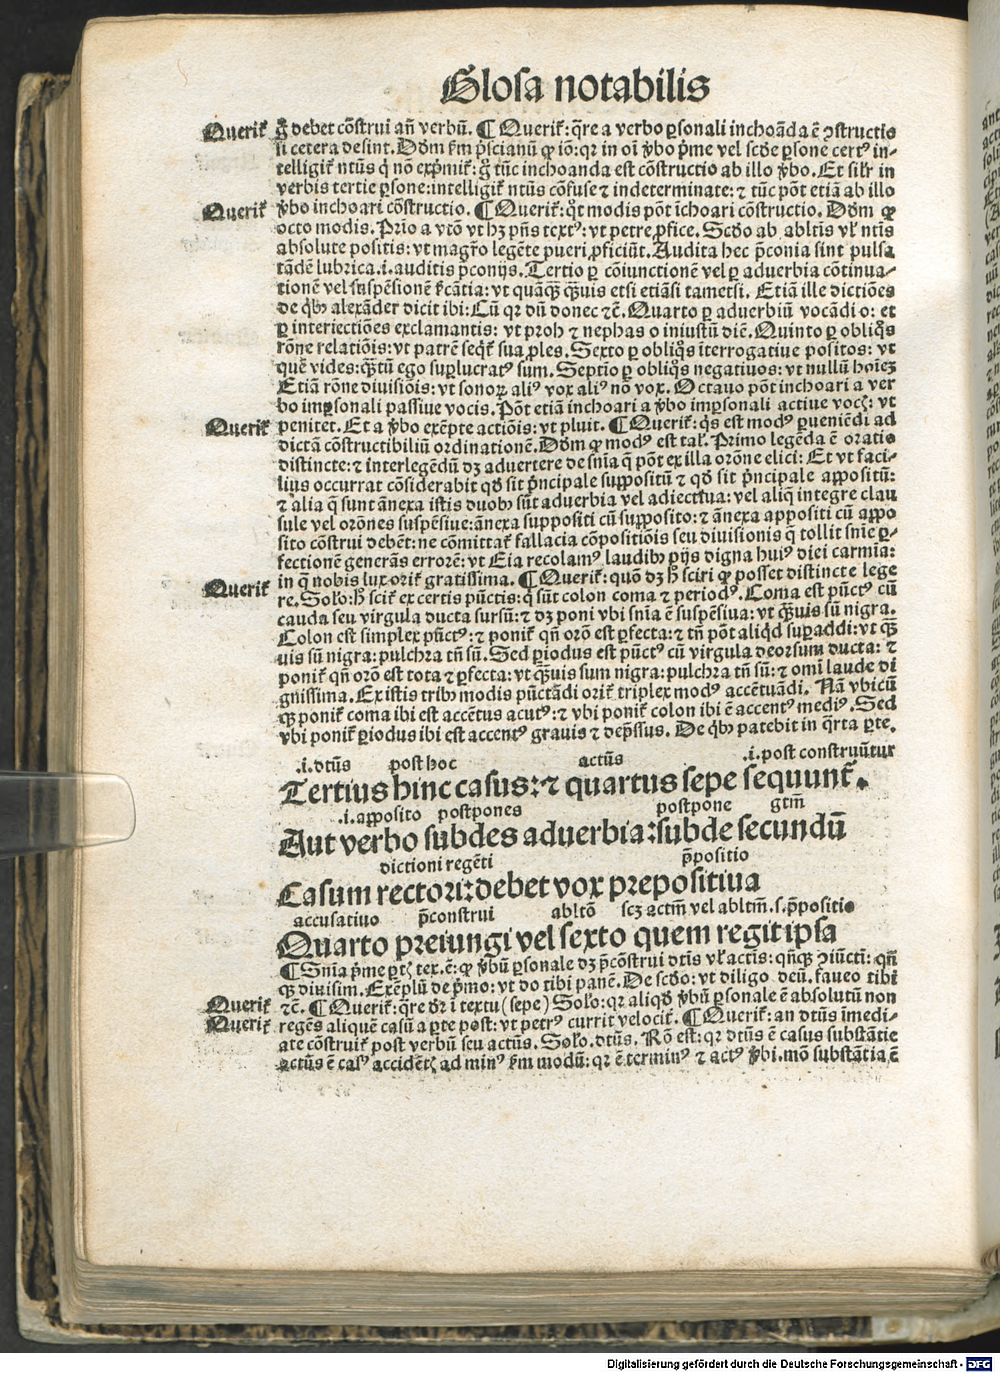 Glosa notabilis
Queriť g̃ debet cõstrui añ verbũ. ¶ Queriť: q̃re a verbo ꝑsonali inchoãda ē ꝯstructio
si cetera desint. Dõm ẜm p̃scianũ ꝙ iõ: qꝛ in oĩ ꝟbo p̃me vel scďe ꝑsone certꝰ in-
telligiť ntũs q̇ nõ exp̃miť: g̃ tũc inchoanda est cõstructio ab illo ꝟbo. Et sil̃r in
verbis tertie ꝑsone: intelligiť ntũs cõfuse ⁊ indeterminate: ⁊ tũc põt etiã ab illo
Queriť ꝟbo inchoari cõstructio. ¶ Queriť: q̇t modis põt ĩchoari cõstructio. Dõm ꝙ
octo modis. Prĩo a vtõ vt hꝫ pñs textꝰ: vt petre ꝓfice. Scďo ab abltis vł ntĩs
absolute positis: vt magr̃o legẽte pueri ꝓficiũt. Audita hec p̃conia sint pulsa
tãdẽ lubrica .i. auditis p̃conijs. Tertio ꝑ cõiunctionẽ vel ꝑ aduerbia cõtinua-
tionẽ vel suspẽsionẽ ẜcãtia: vt quãqꝫ q̃uis etsi etiãsi tametsi. Etiã ille dictiões
de q̇bꝰ alexãder dicit ibi: Cũ qꝛ dũ donec ⁊c̃. Quarto ꝑ aduerbiũ vocãdi o: et
ꝑ interiectiões exclamantis: vt proh ⁊ nephas o iniustũ diẽ. Quinto ꝑ obliq̃s
rõne relatiõis: vt patrẽ seq̃ť sua ꝓles. Sexto ꝑ obliq̃s ĩterrogatiue positos: vt
quẽ vides: q̃tũ ego suꝑlucratꝰ sum. Septĩo ꝑ obliq̃s negatiuos: vt nullũ hoĩeꝫ
Etiã rõne diuisiõis: vt sonoꝝ aliꝰ vox aliꝰ nõ vox. Octauo põt inchoari a ver
bo imꝑsonali passiue vocis. Põt etiã inchoari a ꝟbo imꝑsonali actiue vocꝭ: vt
Queriť penitet. Et a ꝟbo exẽpte actiõis: vt pluit. ¶ Queriť: q̇s est modꝰ ꝑueniẽdi ad
dictã cõstructibiliũ ordinationẽ. Dõm ꝙ modꝰ est talꝭ. Primo legẽda ē oratio
distincte: ⁊ interlegẽdũ dꝫ aduertere de sñia q̃ põt ex illa orõne elici: Et vt faci-
lius occurrat cõsiderabit qď sit p̃ncipale suppositũ ⁊ qď sit p̃ncipale appositũ:
⁊ alia q̃ sunt ãnexa istis duobꝰ sũt aduerbia vel adiectiua: vel aliq̃ integre clau
sule vel orõnes suspẽsiue: ãnexa suppositi cũ supposito: ⁊ ãnexa appositi cũ appo
sito cõstrui debẽt: ne cõmittať fallacia cõpositiõis seu diuisionis q̃ tollit snĩe ꝑ-
fectionẽ generãs errorẽ: vt Eia recolamꝰ laudibꝰ pijs digna huiꝰ diei carmĩa:
Queriť in q̃ nobis lux oriť gratissima. ¶ Queriť: quõ dꝫ h̃ sciri ꝙ posset distincte lege
re. Solo: h̃ sciť ex certis pũctis: q̃ sũt colon coma ⁊ periodꝰ. Coma est pũctꝰ cũ
cauda seu virgula ducta sursũ: ⁊ dꝫ poni vbi snĩa ē suspẽsiua: vt q̃uis sũ nigra.
Colon est simplex pũctꝰ: ⁊ poniť qñ orõ est ꝑfecta: ⁊ tñ põt aliq̇d suꝑaddi: vt q̃
uis sũ nigra: pulchra tñ sũ. Sed ꝑiodus est pũctꝰ cũ virgula deorsum ducta: ⁊
poniť qñ orõ est tota ⁊ ꝑfecta: vt q̃uis sum nigra: pulchra tñ sũ: ⁊ omĩ laude di
gnissima. Ex istis tribꝰ modis pũctãdi oriť triplex modꝰ accẽtuãdi. Nã vbicũ
qꝫ poniť coma ibi est accẽtus acutꝰ: ⁊ vbi poniť colon ibi ē accentꝰ mediꝰ. Sed
vbi poniť ꝑiodus ibi est accentꝰ grauis ⁊ dep̃ssus. De q̇bꝰ patebit in q̃rta ꝑte.
.i. dtũs post hoc actũs .i. post construũtur
Tertius hinc casus: ⁊ quartus sepe sequunť.
.i. apposito postpones postpone gtm̃
Aut verbo subdes aduerbia: subde secundũ
dictioni regẽti p̃positio
Casum rectori: debet vox prepositiua
accusatiuo p̃construi abltõ scꝫ actm̃ vel abltm̃ .s. p̃positio
Quarto preiungi vel sexto quem regit ipsa
¶ Snĩa p̃me ꝑtꝭ tex. ē: ꝙ ꝟbũ ꝑsonale dꝫ p̃cõstrui dtĩs vł actĩs: qñqꝫ ꝯiũctĩ: qñ
qꝫ diuisim. Exẽplũ de p̃mo: vt do tibi panẽ. De scďo: vt diligo deũ. faueo tibi
Queriť ⁊c̃. ¶ Queriť: q̃re ďr ĩ textu (sepe) Solo: qꝛ aliqď ꝟbũ ꝑsonale ē absolutũ non
Queriť regẽs aliquẽ casũ a ꝑte post: vt petrꝰ currit velociť. ¶ Queriť: an dtũs ĩmedi-
ate cõstruiť post verbũ seu actũs. Solo. dtũs. Rõ est: qꝛ dtũs ē casus substãtie
actũs ē casꝰ accidẽtꝭ ad minꝰ ẜm modũ: qꝛ ē terminꝰ ⁊ actꝰ ꝟbi. mõ substãtia ē
Digitalisierung gefördert durch die Deutsche Forschungsgemeinschaft - DFG